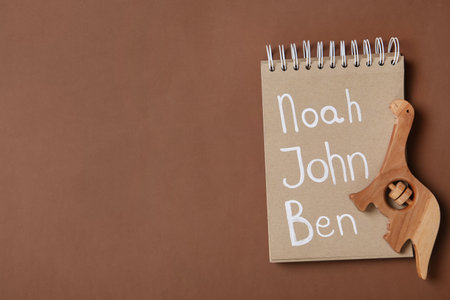 Noah
John
Ben